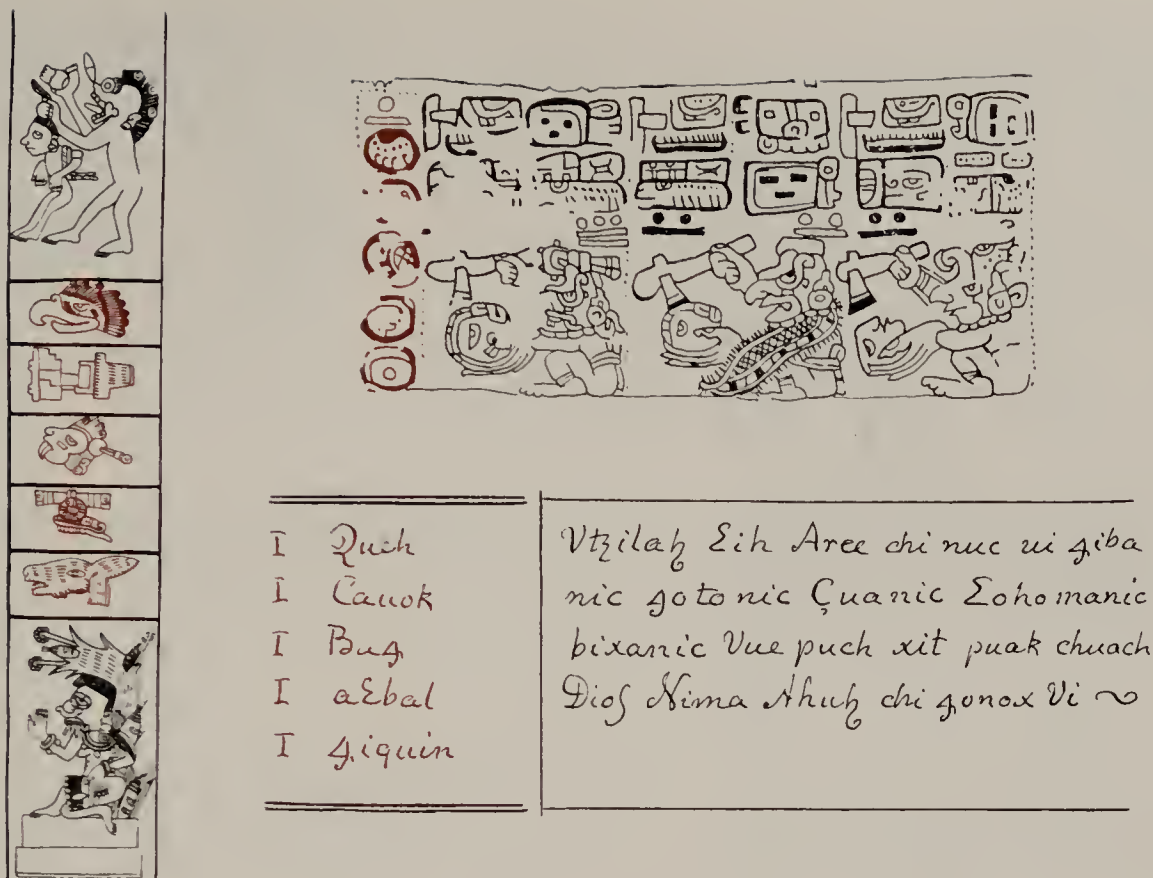 I Queh
I Cauok
I Buꜭ
I aꜫbal
I ꜭiquin
Vtzilaɦ Ɛih Areɛ chi nuc ui ꜭiba
nic ꜭoto nic Çuanic Ɛohomanic
bixanic Vue puch xit puak chuach
Dios Nima Ahuɦ chi ꜭonox Vi ~